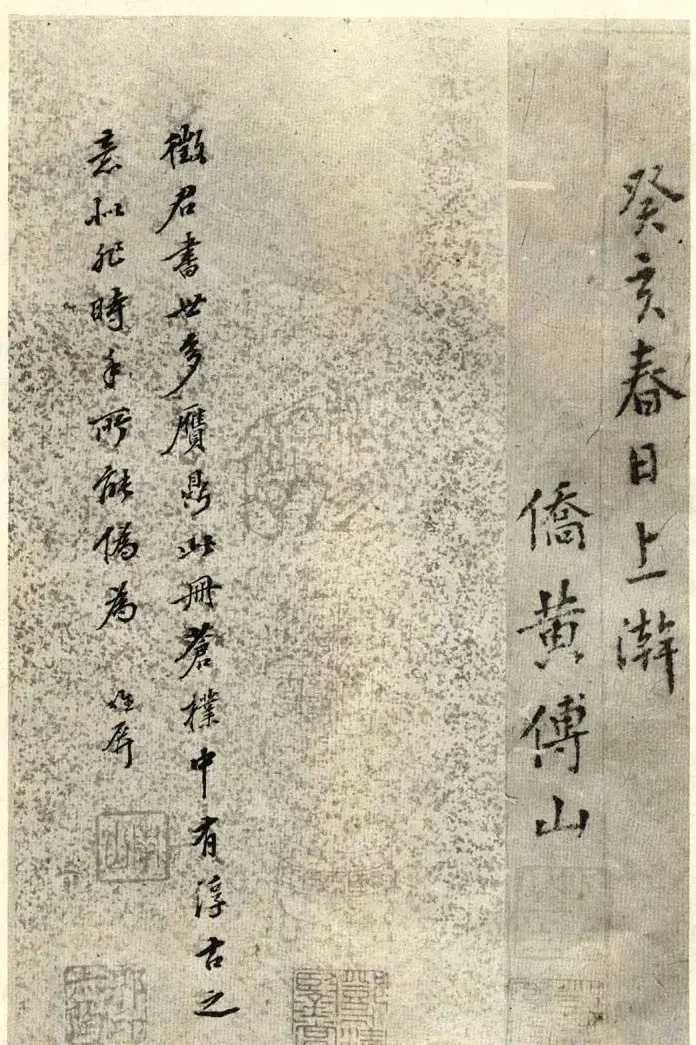 癸亥春日上澣
僑黄傅山
徵君書世多贋鼎此冊蒼樸中有淳古之
意似非時手所能僞為